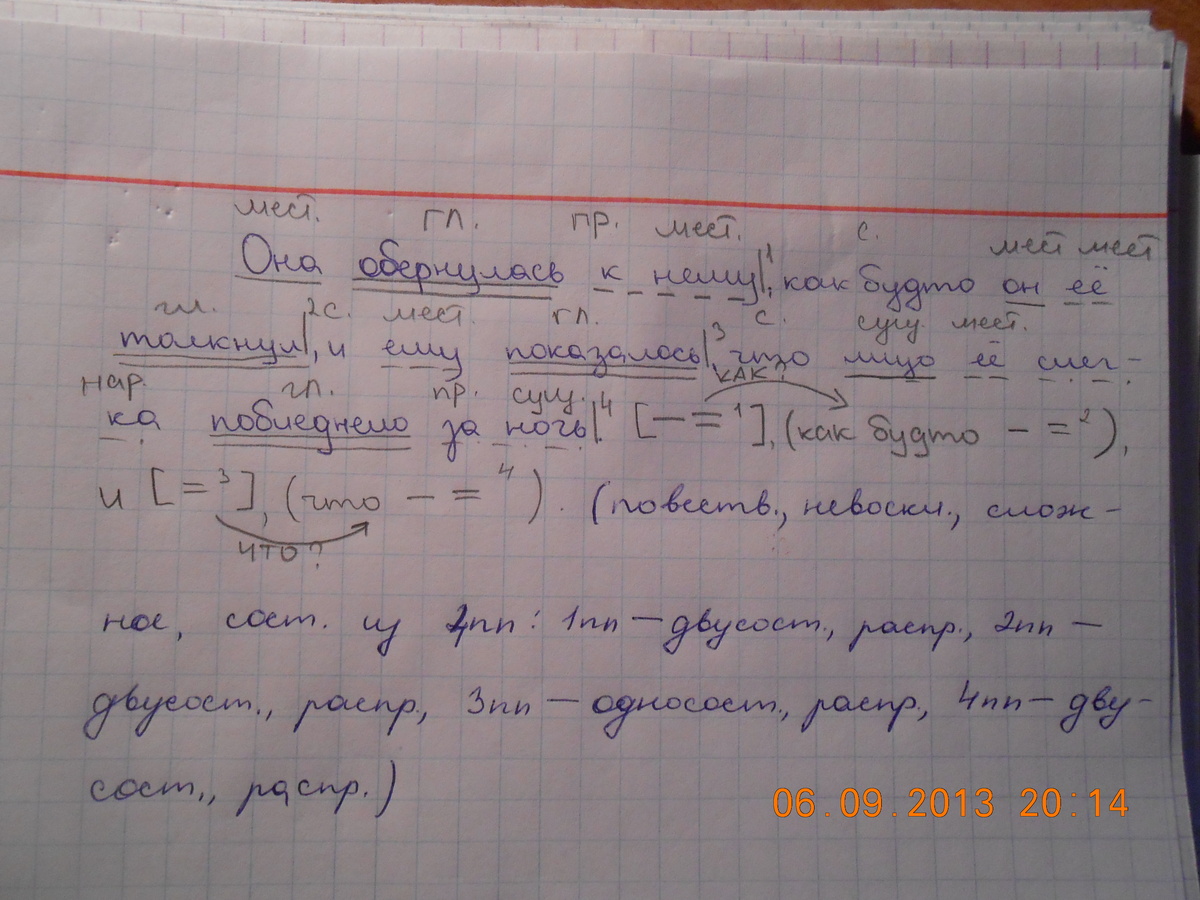 мест. гл. пр. мест. с. мест мест
Она обернулась к нему|¹, как будто он её
гл. 2с. мест. гл. 3 с. сущ. мест.
толкнул|, и ему показалось|, что лицо её слег-
нар. гл. пр. сущ. 4 как?
ка побледнело за ночь|. [— = ¹], (как будто — = ²),
и [= ³], (что — = ⁴). (повеств., невоскл., слож-
что?
ное, сост. из 4пп: 1пп — двусост., распр., 2пп —
двусост., распр., 3пп — односост., распр., 4пп — дву-
сост., распр.)
06.09.2013 20:14